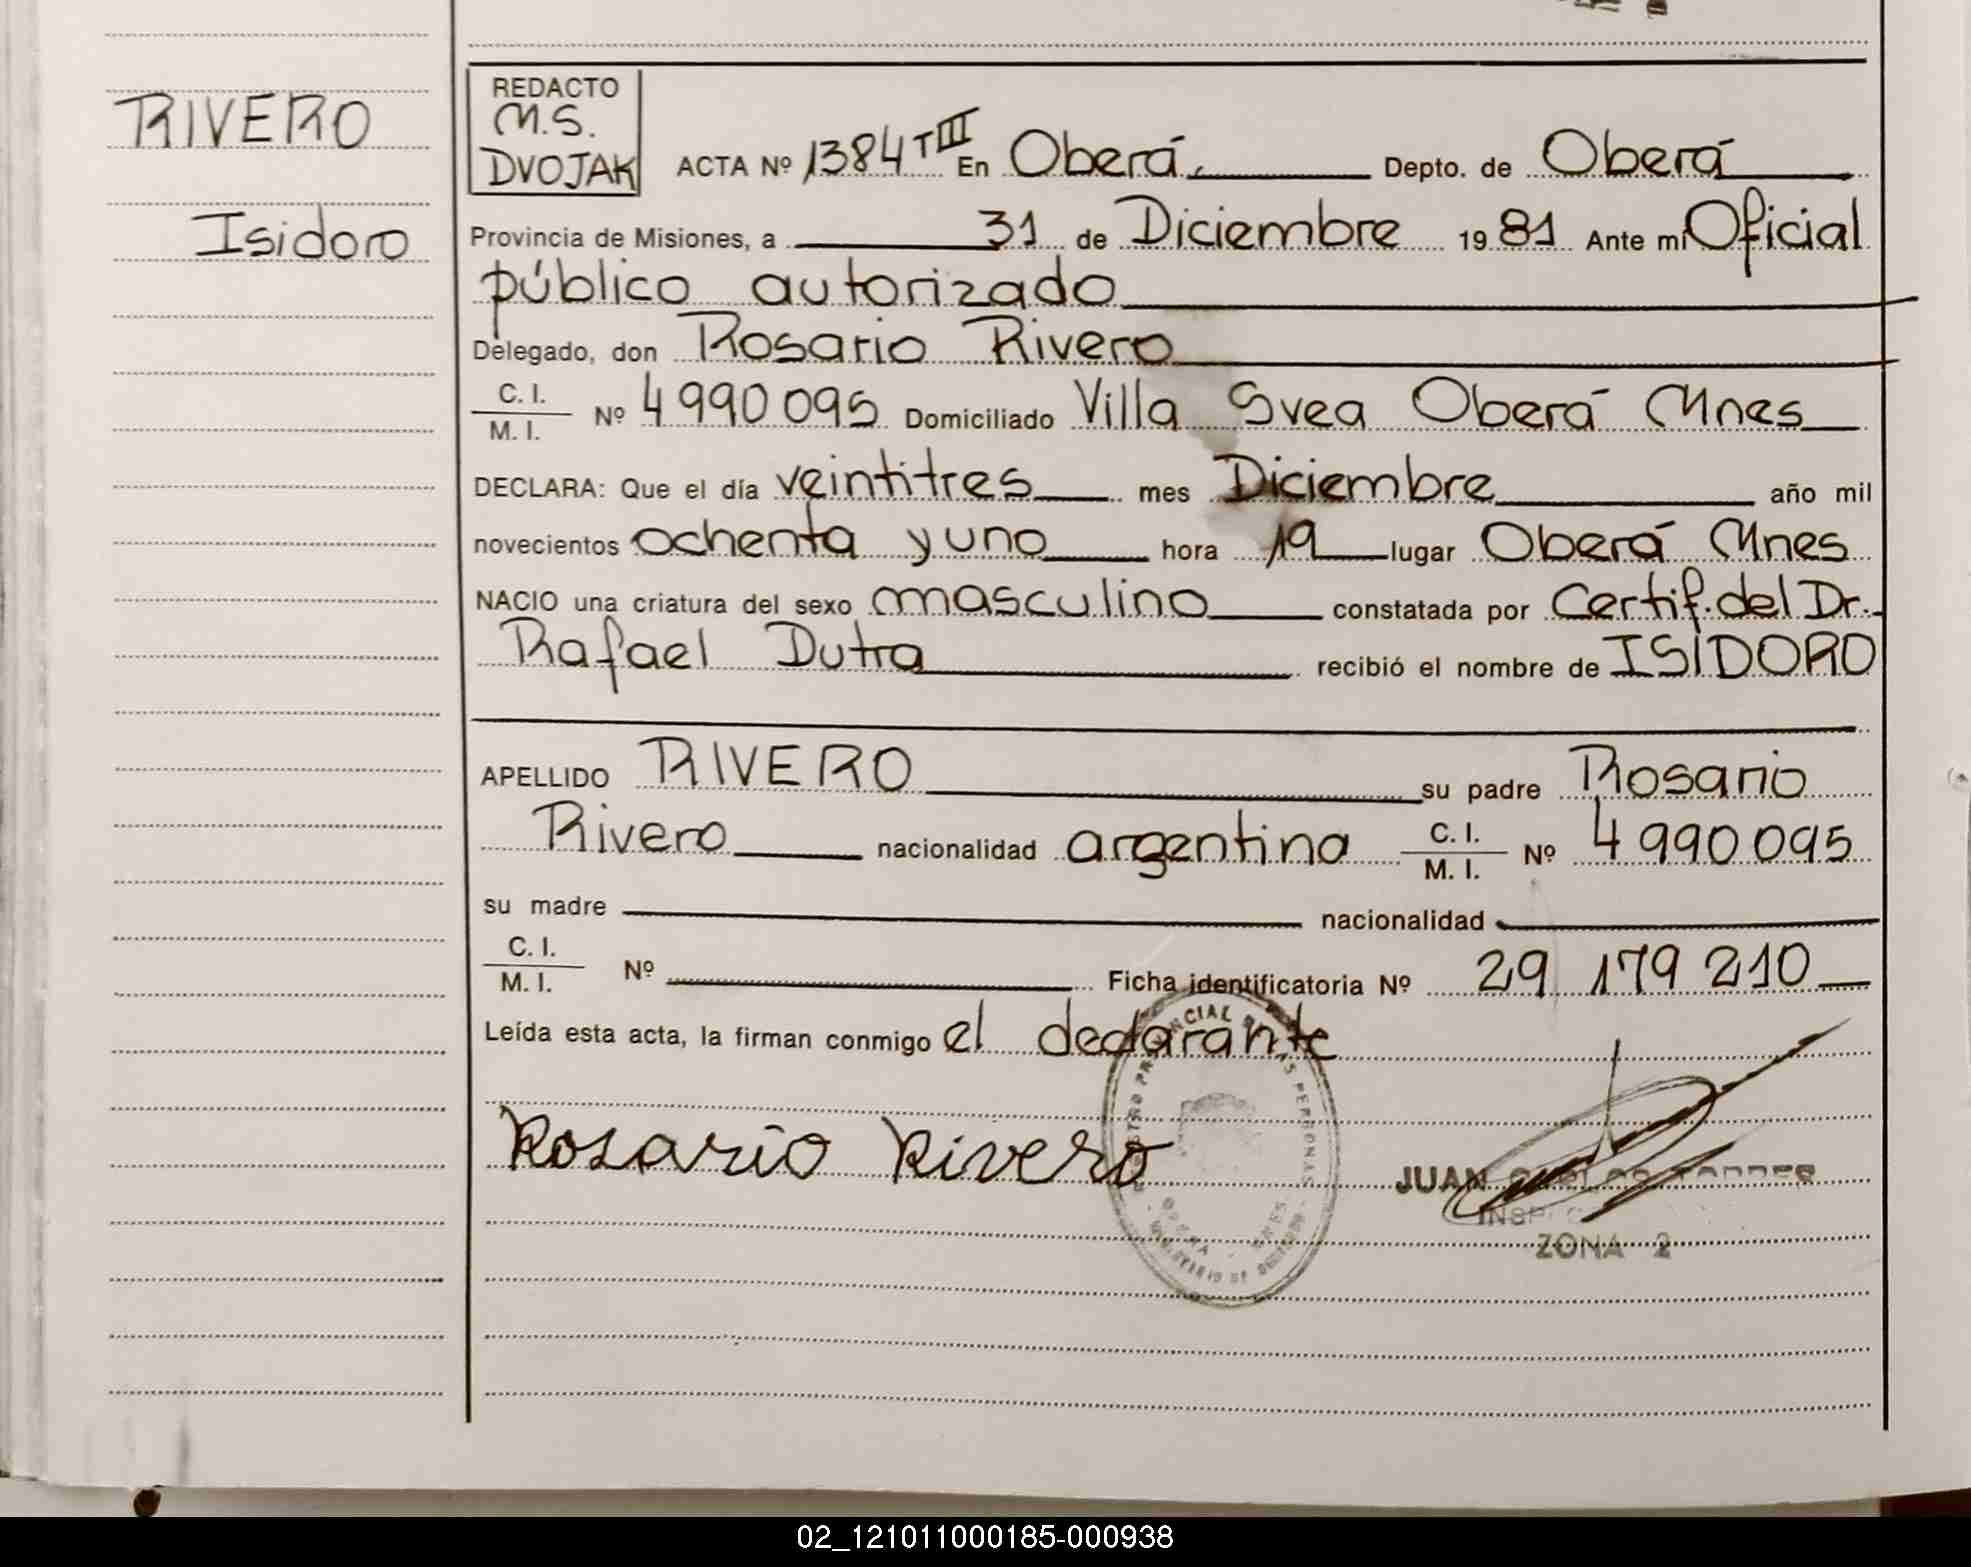 RIVERO
Isidoro
REDACTO
M.S.
DVOJAK
ACTA Nº 1384 TIII En Oberá, Depto. de Oberá
Provincia de Misiones, a 31 de Diciembre 19 81 Ante mi Oficial
público autorizado
Delegado, don Rosario Rivero
C. I.
M. I. Nº 4990095 Domiciliado Villa Svea Oberá Mnes
DECLARA: Que el día veintitres mes Diciembre año mil
novecientos ochenta y uno hora 19 lugar Oberá Mnes
NACIO una criatura del sexo masculino constatada por Certif. del Dr.
Rafael Dutra recibió el nombre de ISIDORO
APELLIDO RIVERO su padre Rosario
Rivero nacionalidad argentina C. I. M. I. Nº 4990095
su madre nacionalidad
C. I.
M. I. Nº Ficha identificatoria Nº 29 179 210
Leída esta acta, la firman conmigo el declarante
Rosario Rivero
PERSONAS
JUAN
ZONA 2
02_121011000185-000938